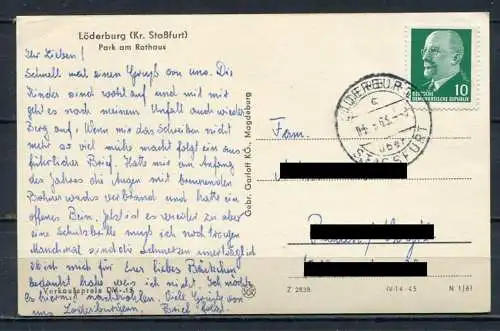 Löderburg (Kr. Staßfurt)
Park am Rathaus
Ihr Lieben!
Schnell mal einen Gruß von uns. Die
Kinder sind wohlauf und mit mir
geht es nach meinem Unfall auch wieder
Berg auf. Wenn mir das Schreiben nicht
mehr so viel mühe macht folgt ein aus-
führlicher Brief. Hatte mir am Anfang
des Jahres die Augen mit
Bohnerwachs verbrannt und hatte ein
offenes Bein. Jetzt ist es wieder zu aber
eine muß ich noch tragen
Manchmal sind die Schmerzen unerträglich
ich mich für Euer liebes
bedankt habe weis ich nicht. Ich möchte
es hiermit nachholen. Viele Grüße von
uns Löderburgern.
Verkaufspreis DM -.15
Gebr. Garloff KG., Magdeburg
LÖDERBURG
STASSFURT
über
10
DEUTSCHE
DEMOKRATISCHE REPUBLIK
Fam.
Z 2838
IV-14-45
N 1/61